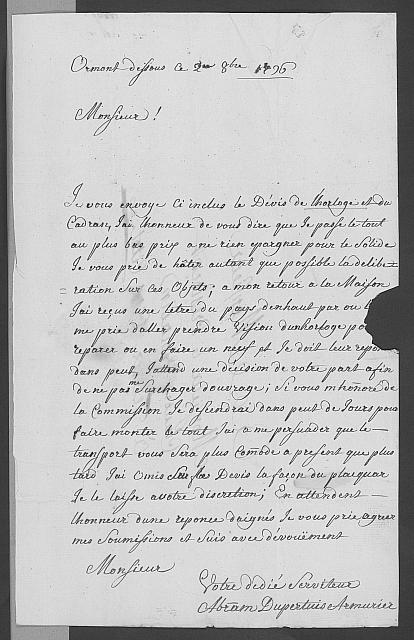 Ormont dessous ce 2me 8bre 1796
Monsieur !
Je vous envoye Ci inclus le Dévis de lhorloge et du
Cadran, J'ai lhonneur de vous dire que Je passe le tout
au plus bas prix a ne rien epargner pour le Solide
Je vous prie de hâter autant que possible la délibe=
ration Sur Ces Objets; a mon retour a la Maison
J'ai reçus une letre du pays denhaut par ou
me prie daller prendre Vision dunhorloge
reparer ou en faire un neuf et Je doit leur
dans peut, Jattend une décision de votre part afin
de ne pas me Surchager douvrage; Si vous mhonoré
de la Commission Je desendrai dans peut de Jours pour
faire monter le tout Jai a me persuader que le
transport vous Sera plus Comode a present que plus
tard J'ai Omis Sur la Devis la façon du plaquar
Je le laisse avotre discretion; En attendent
lhonneur dune reponce daignés Je vous prie agreer
mes Soumissions et Suis avec dévouément
Monsieur
Votre dedié Serviteur
Abram Dupertuis Armurier